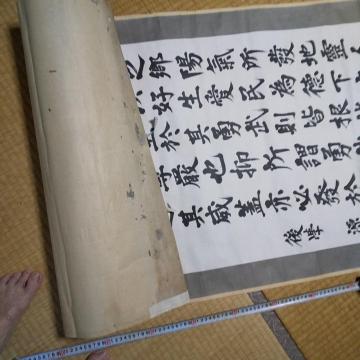 之鄉陽氣所發地靈人
好生愛民為德下
於其勇武則皆根
嚴也抑所謂勇
其威蓋亦必發於
後